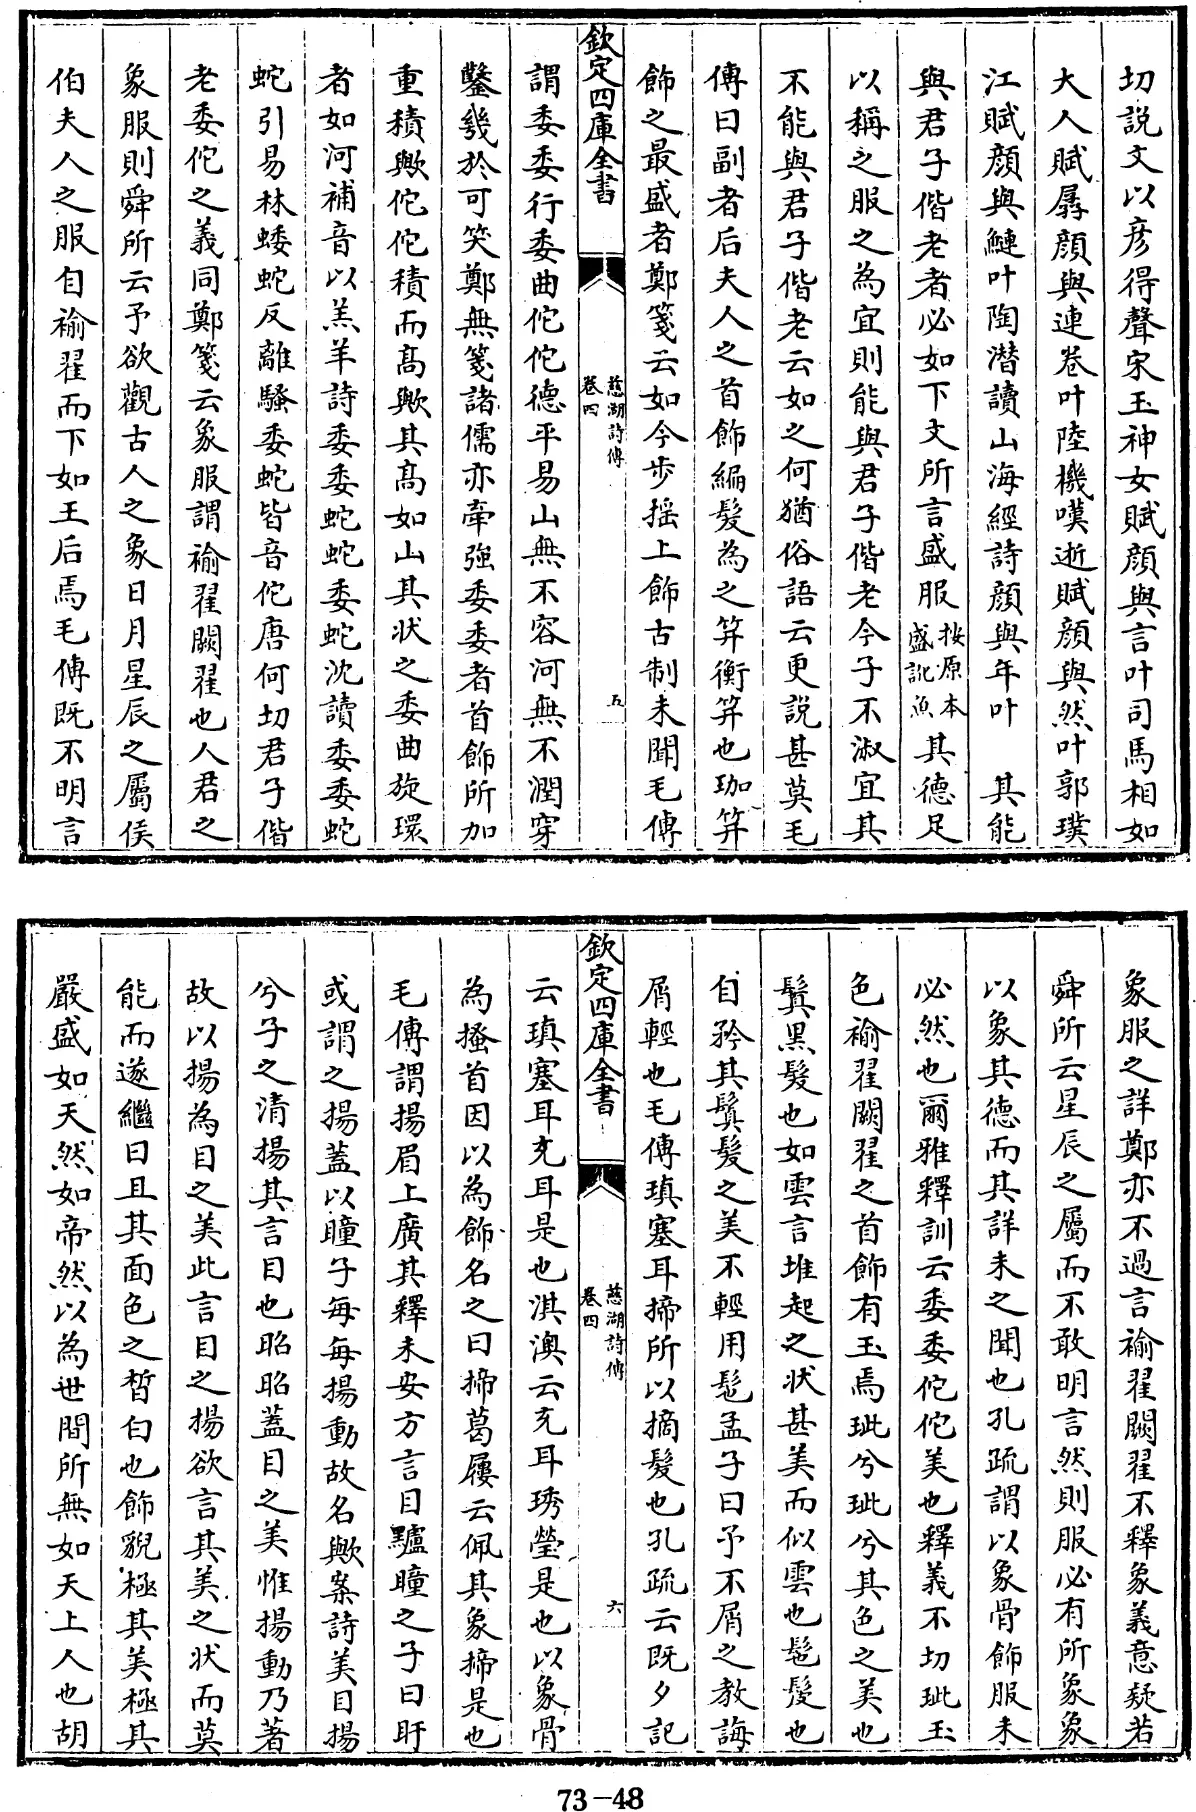 切說文以彦得聲宋玉神女賦顔與言叶司馬相如
大人賦孱顔與連卷叶陸機嘆逝賦顔與然叶郭璞
江賦顔與鰱叶陶潛讀山海經詩顔與年叶　其能
與君子偕老者必如下文所言盛服按原本盛訛魚其德足
以稱之服之為宜則能與君子偕老今子不淑宜其
不能與君子偕老云如之何猶俗語云更說甚莫毛
傳曰副者后夫人之首飾編髮為之笄衡笄也珈笄
飾之最盛者鄭箋云如今步揺上飾古制未聞毛傳
欽定四庫全書
慈湖詩傳
卷四
五
謂委委行委曲佗佗德平易山無不容河無不潤穿
鑿幾於可笑鄭無箋諸儒亦牽強委委者首飾所加
重積歟佗佗積而髙歟其髙如山其状之委曲旋環
者如河補音以羔羊詩委委蛇蛇委蛇沈讀委委蛇
蛇引易林蜲蛇反離騷委蛇皆音佗唐何切君子偕
老委佗之義同鄭箋云象服謂褕翟闕翟也人君之
象服則舜所云予欲觀古人之象日月星辰之屬侯
伯夫人之服自褕翟而下如王后焉毛傳既不明言
象服之詳鄭亦不過言褕翟闕翟不釋象義意疑若
舜所云星辰之屬而不敢明言然則服必有所象象
以象其德而其詳未之聞也孔疏謂以象骨飾服未
必然也爾雅釋訓云委委佗佗美也釋義不切玼玉
色褕翟闕翟之首飾有玉焉玼兮玼兮其色之美也
鬒黒髮也如雲言堆起之状甚美而似雲也髢髲也
自矜其鬒髮之美不輕用髢孟子曰予不屑之教誨
屑輕也毛傳瑱塞耳揥所以摘髮也孔疏云既夕記
欽定四庫全書
慈湖詩傳
卷四
六
云瑱塞耳充耳是也淇澳云充耳琇瑩是也以象骨
為搔首因以為飾名之曰揥葛屨云佩其象揥是也
毛傳謂揚眉上廣其釋未安方言目驢瞳之子曰盱
或謂之揚蓋以瞳子每每揚動故名歟案詩美目揚
兮子之清揚其言目也昭昭蓋目之美惟揚動乃著
故以揚為目之美此言目之揚欲言其美之状而莫
能而遂繼曰且其面色之晳白也飾貌極其美極其
嚴盛如天然如帝然以為世間所無如天上人也胡
73-48